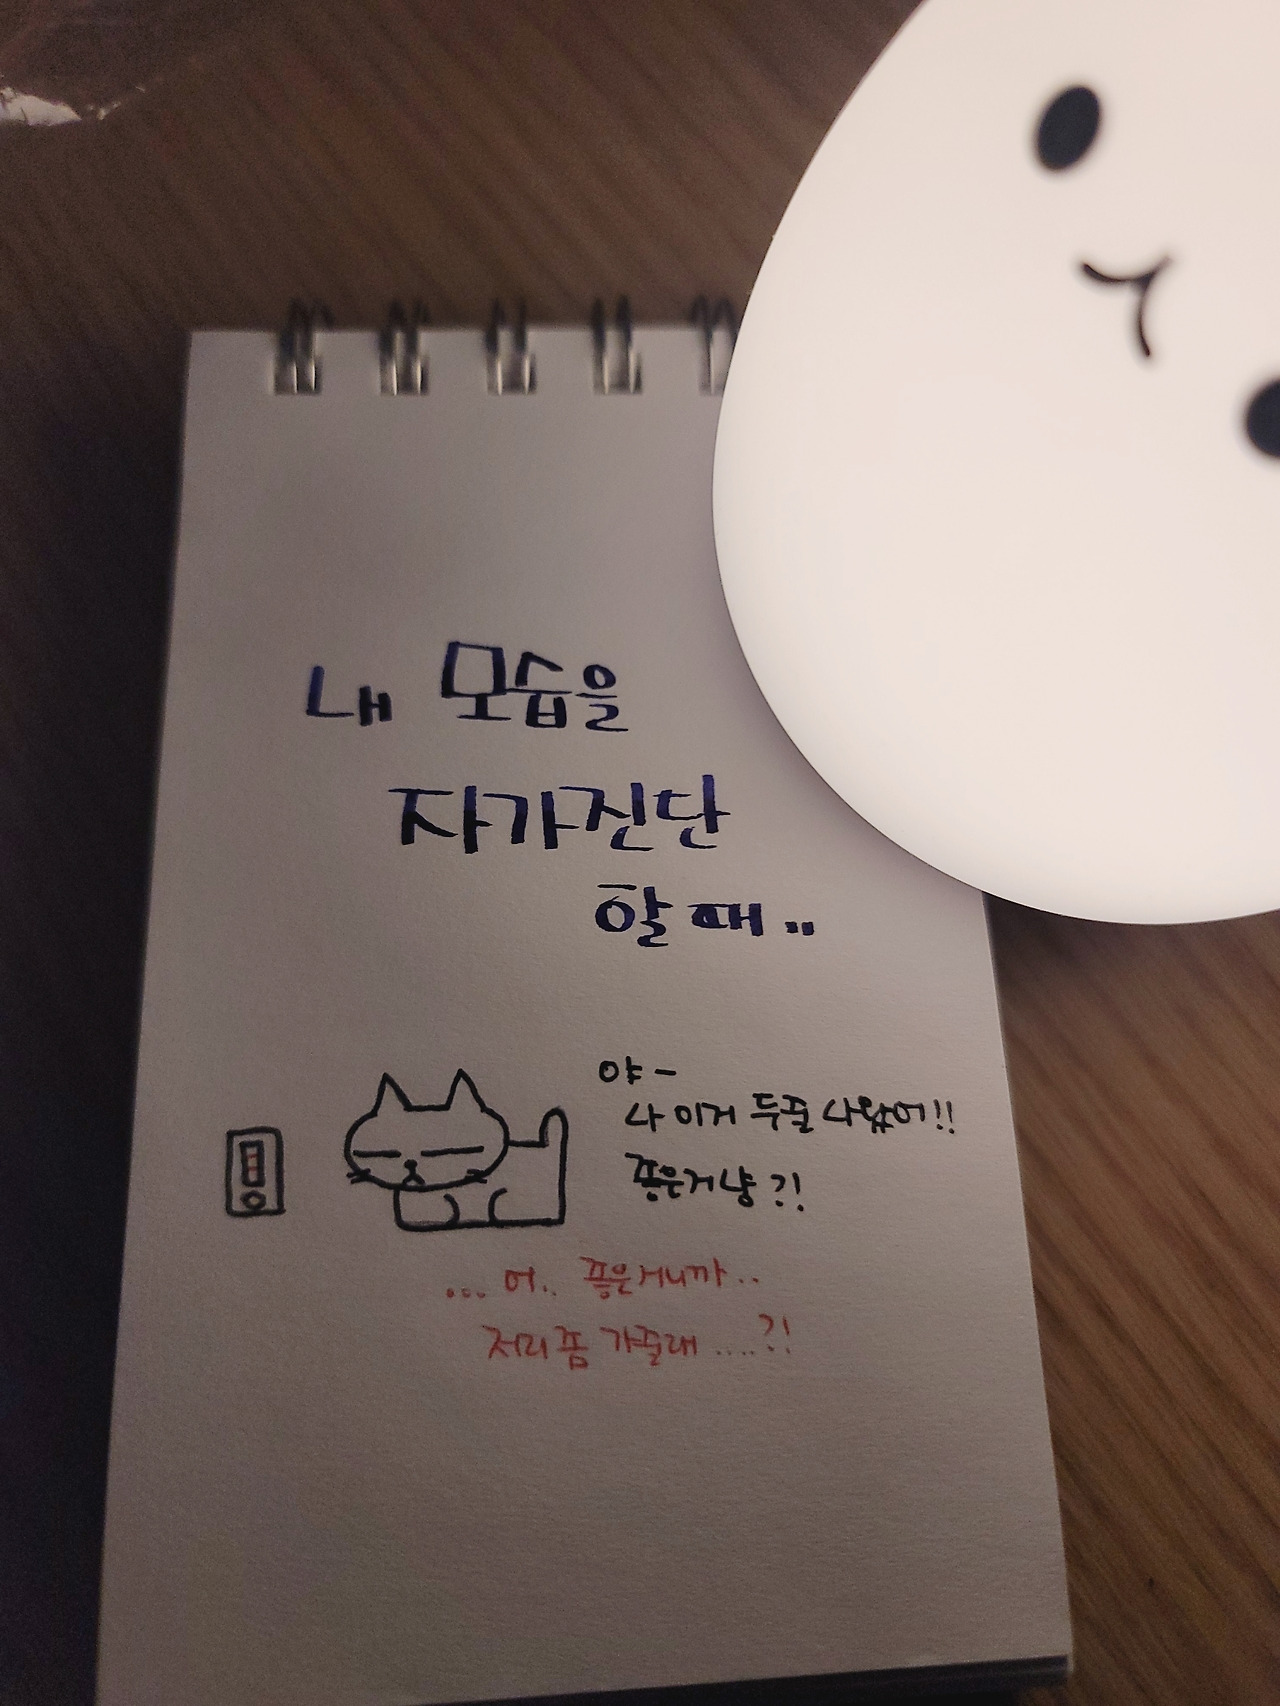 내 모습을
자가진단
할 때..
야-
나 이거 두줄 나왔어!!
좋은거냥?!
... 어.. 좋은거니까..
저리좀 가줄래....?!